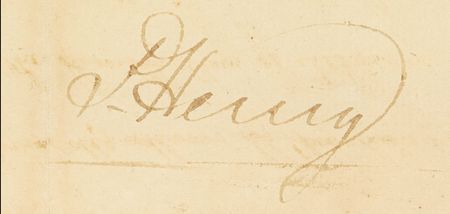 P. Henry